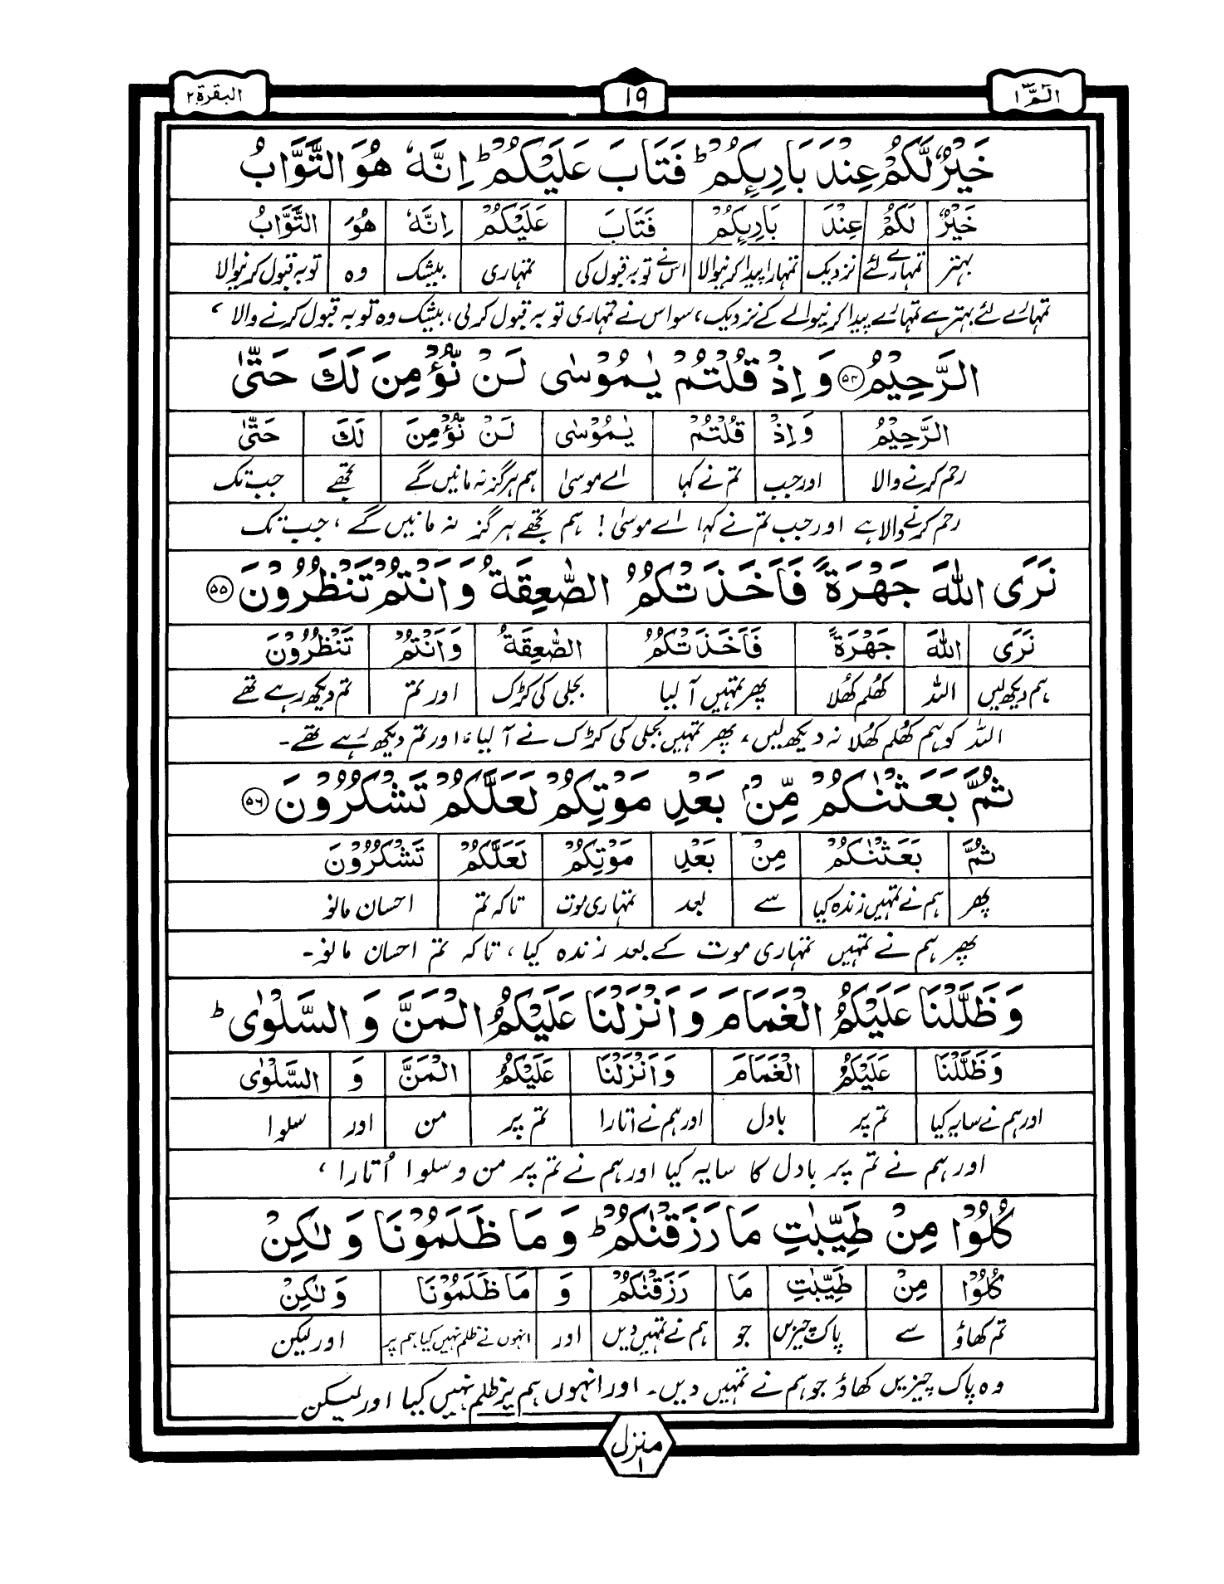 الٓمّٓ ١ ١٩ البقرة ٢
خَيْرٌ لَّكُمْ عِنْدَ بَارِئِكُمْ ؕ فَتَابَ عَلَيْكُمْ ؕ اِنَّهٗ هُوَ التَّوَّابُ
خَيْرٌ لَكُمْ عِنْدَ بَارِئِكُمْ فَتَابَ عَلَيْكُمْ اِنَّهٗ هُوَ التَّوَّابُ
بہتر تمہارے لئے نزدیک تمہارا پیدا کرنیوالا اس نے توبہ قبول کی تمہاری بیشک وہ توبہ قبول کرنیوالا
تمہارے لئے بہتر ہے تمہارے پیدا کرنیوالے کے نزدیک، سو اس نے تمہاری توبہ قبول کرلی، بیشک وہ توبہ قبول کرنے والا ،
الرَّحِيْمُ ۝۵۴ وَ اِذْ قُلْتُمْ يٰمُوْسٰى لَنْ نُّؤْمِنَ لَكَ حَتّٰى
الرَّحِيْمُ وَاِذْ قُلْتُمْ يٰمُوْسٰى لَنْ نُّؤْمِنَ لَكَ حَتّٰى
رحم کرنے والا اور جب تم نے کہا اے موسیٰ ہم ہرگز نہ مانیں گے تجھے جب تک
رحم کرنے والا ہے اور جب تم نے کہا اے موسیٰ! ہم تجھے ہرگز نہ مانیں گے ، جب تک
نَرَى اللّٰهَ جَهْرَةً فَاَخَذَتْكُمُ الصّٰعِقَةُ وَاَنْتُمْ تَنْظُرُوْنَ ۝۵۵
نَرَى اللّٰهَ جَهْرَةً فَاَخَذَتْكُمُ الصّٰعِقَةُ وَاَنْتُمْ تَنْظُرُوْنَ
ہم دیکھ لیں اللہ کھلم کھلا پھر تمہیں آ لیا بجلی کی کڑک اور تم تم دیکھ رہے تھے
اللہ کو ہم کھلم کھلا نہ دیکھ لیں، پھر تمہیں بجلی کی کڑک نے آ لیا، اور تم دیکھ رہے تھے۔
ثُمَّ بَعَثْنٰكُمْ مِّنْۢ بَعْدِ مَوْتِكُمْ لَعَلَّكُمْ تَشْكُرُوْنَ ۝۵۶
ثُمَّ بَعَثْنٰكُمْ مِنْ بَعْدِ مَوْتِكُمْ لَعَلَّكُمْ تَشْكُرُوْنَ
پھر ہم نے تمہیں زندہ کیا سے بعد تمہاری موت تاکہ تم احسان مانو
پھر ہم نے تمہیں تمہاری موت کے بعد زندہ کیا ، تاکہ تم احسان مانو۔
وَ ظَلَّلْنَا عَلَيْكُمُ الْغَمَامَ وَ اَنْزَلْنَا عَلَيْكُمُ الْمَنَّ وَ السَّلْوٰى ؕ
وَظَلَّلْنَا عَلَيْكُمُ الْغَمَامَ وَاَنْزَلْنَا عَلَيْكُمُ الْمَنَّ وَ السَّلْوٰى
اور ہم نے سایہ کیا تم پر بادل اور ہم نے اتارا تم پر من اور سلوا
اور ہم نے تم پر بادل کا سایہ کیا اور ہم نے تم پر من و سلوا اُتارا ،
كُلُوْا مِنْ طَيِّبٰتِ مَا رَزَقْنٰكُمْ ؕ وَ مَا ظَلَمُوْنَا وَ لٰكِنْ
كُلُوْا مِنْ طَيِّبٰتِ مَا رَزَقْنٰكُمْ وَ مَا ظَلَمُوْنَا وَ لٰكِنْ
تم کھاؤ سے پاک چیزیں جو ہم نے تمہیں دیں اور انہوں نے ظلم نہیں کیا ہم پر اور لیکن
وہ پاک چیزیں کھاؤ جو ہم نے تمہیں دیں۔ اور انہوں ہم پر ظلم نہیں کیا اور لیکن
منزل ١